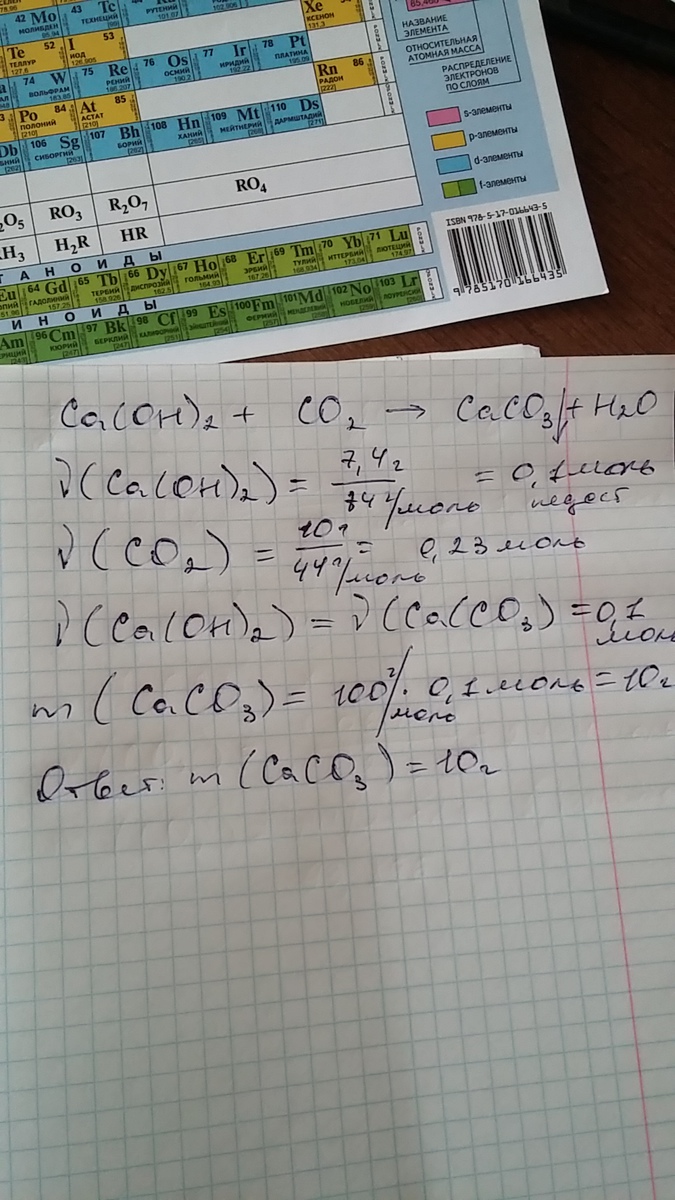 42 Mo
МОЛИБДЕН
43 Tc
ТЕХНЕЦИЙ
РУТЕНИЙ
Xe
КСЕНОН
131,3
Te 52
ТЕЛЛУР
127,6
I 53
ИОД
126,905
74 W
ВОЛЬФРАМ
75 Re
РЕНИЙ
76 Os
ОСМИЙ
190,2
77 Ir
ИРИДИЙ
192,22
78 Pt
ПЛАТИНА
195,09
Rn 86
РАДОН
[222]
Po 84
ПОЛОНИЙ
[210]
At 85
АСТАТ
[210]
Db
106 Sg
СИБОРГИЙ
[263]
107 Bh
БОРИЙ
[262]
108 Hn
ХАНИЙ
[265]
109 Mt
МЕЙТНЕРИЙ
110 Ds
ДАРМШТАДИЙ
[271]
НАЗВАНИЕ
ЭЛЕМЕНТА
ОТНОСИТЕЛЬНАЯ
АТОМНАЯ МАССА
РАСПРЕДЕЛЕНИЕ
ЭЛЕКТРОНОВ
ПО СЛОЯМ
s-элементы
p-элементы
d-элементы
f-элементы
2O5 RO3 R2O7 RO4
H3 H2R HR
ТАНОИДЫ
Eu
64 Gd
ГАДОЛИНИЙ
157,25
65 Tb
ТЕРБИЙ
158,926
66 Dy
ДИСПРОЗИЙ
162,5
67 Ho
ГОЛЬМИЙ
164,93
68 Er
ЭРБИЙ
167,26
69 Tm
ТУЛИЙ
168,934
70 Yb
ИТТЕРБИЙ
173,04
71 Lu
ЛЮТЕЦИЙ
174,97
ИНОИДЫ
Am
96 Cm
КЮРИЙ
[247]
97 Bk
БЕРКЛИЙ
[247]
98 Cf
КАЛИФОРНИЙ
[251]
99 Es
ЭЙНШТЕЙНИЙ
[254]
100 Fm
ФЕРМИЙ
[257]
101 Md
МЕНДЕЛЕВИЙ
102 No
НОБЕЛИЙ
103 Lr
ЛОУРЕНСИЙ
ISBN 978-5-17-016643-5
9 785170 166435
Ca(OH)2 + CO2 → CaCO3↓ + H2O
ν(Ca(OH)2) = 7,4г / 74 г/моль = 0,1 моль
недост
ν(CO2) = 10г / 44 г/моль = 0,23 моль
ν(Ca(OH)2) = ν(Ca(CO3) = 0,1 моль
m(CaCO3) = 100 г/моль · 0,1 моль = 10г
Ответ: m(CaCO3) = 10г